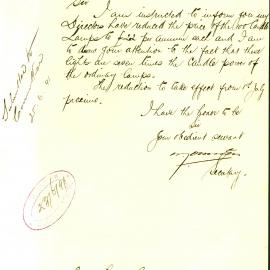 Sir
I am instructed to inform you my
Directors have reduced the price of the 100 Candle
Lamps to per annum each and I am
to draw your attention to the fact that these
lights are seven times the Candle power of
the ordinary Lamps.
The reduction to take effect from 1st July
proximo.
I have the honor to be
Sir
Your obedient servant
Secretary